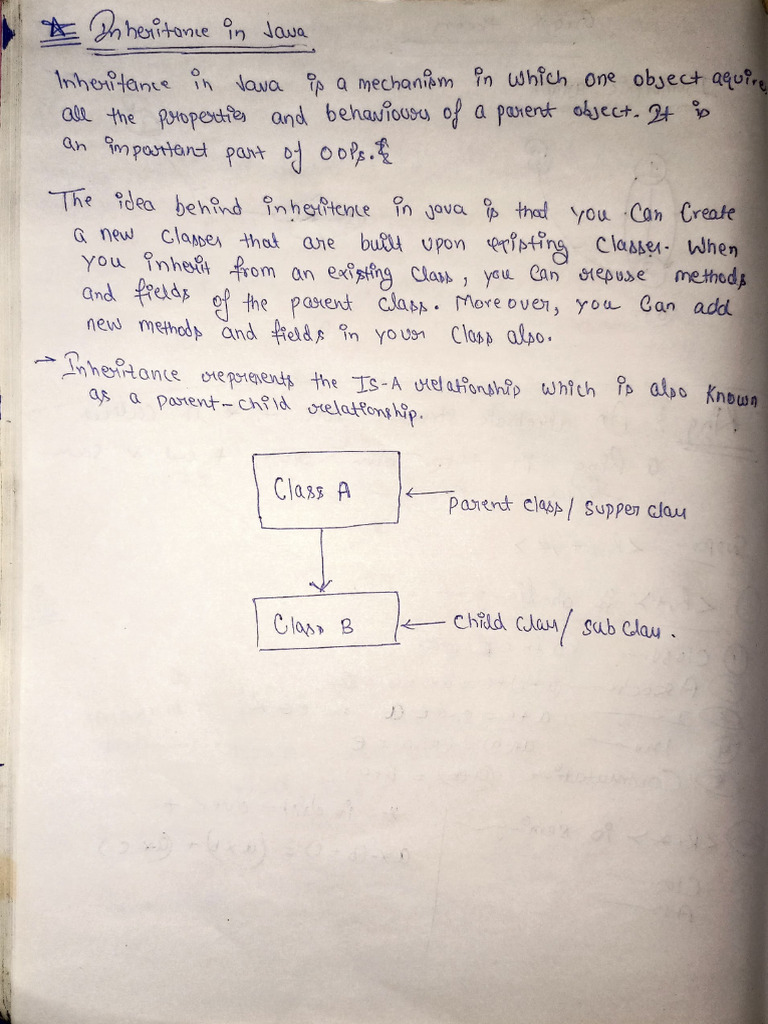 Inheritance in Java
Inheritance in Java is a mechanism in which one object aquire
all the properties and behaviours of a parent object. It is
an important part of OOPs.
The idea behind inheritence in java is that you can create
a new classes that are built upon existing classes. When
you inherit from an existing class, you can repuse methods
and fields of the parent class. Moreover, you can add
new methods and fields in your class also.
→ Inheritance represents the IS-A relationship which is also known
as a parent-child relationship.
Class A
← parent class/ supper class
Class B
← child class/ sub class.